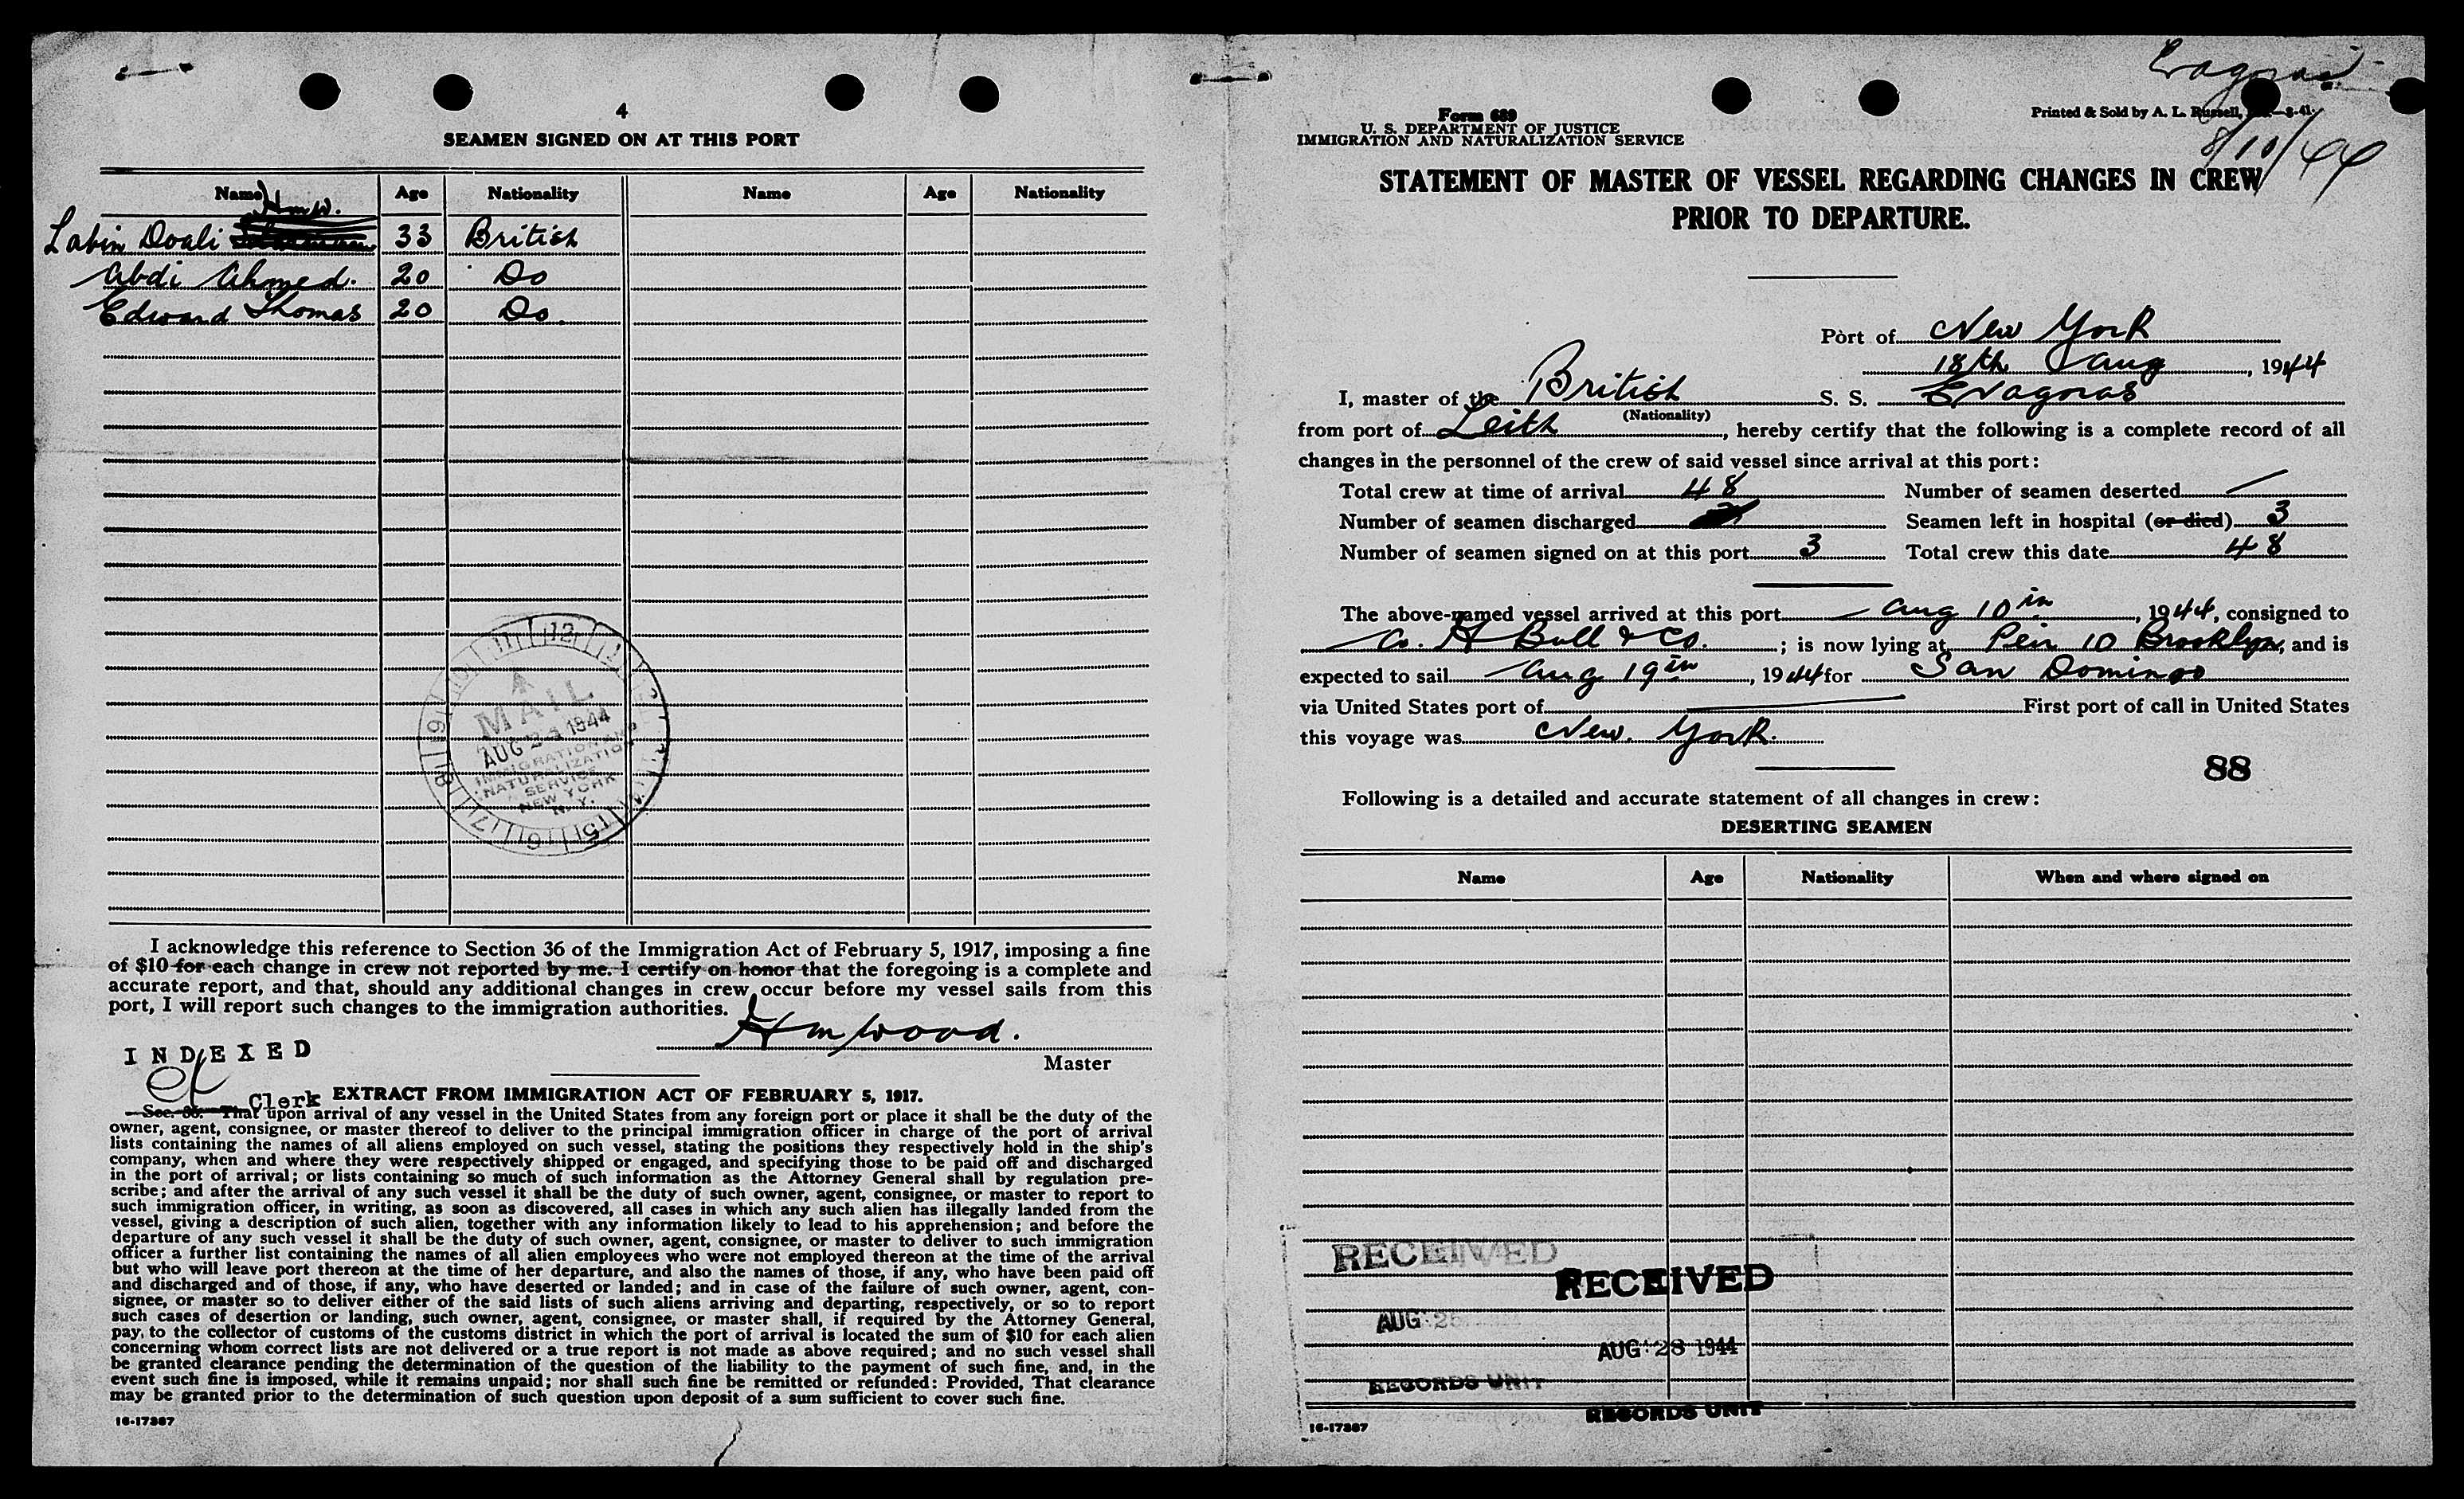 4
SEAMEN SIGNED ON AT THIS PORT
Name Age Nationality Name Age Nationality
H.m.W.
Labin Doali 33 British
Abdi Ahmed. 20 Do
Edward Thomas 20 Do
MAIL
AUG 23 1944
IMMIGRATION AND
NATURALIZATION
SERVICE
NEW YORK
N. Y.
I acknowledge this reference to Section 36 of the Immigration Act of February 5, 1917, imposing a fine
of $10 for each change in crew not reported by me. I certify on honor that the foregoing is a complete and
accurate report, and that, should any additional changes in crew occur before my vessel sails from this
port, I will report such changes to the immigration authorities.
HmWood.
Master
INDEXED
Clerk
EXTRACT FROM IMMIGRATION ACT OF FEBRUARY 5, 1917.
Sec. 36. That upon arrival of any vessel in the United States from any foreign port or place it shall be the duty of the
owner, agent, consignee, or master thereof to deliver to the principal immigration officer in charge of the port of arrival
lists containing the names of all aliens employed on such vessel, stating the positions they respectively hold in the ship's
company, when and where they were respectively shipped or engaged, and specifying those to be paid off and discharged
in the port of arrival; or lists containing so much of such information as the Attorney General shall by regulation pre-
scribe; and after the arrival of any such vessel it shall be the duty of such owner, agent, consignee, or master to report to
such immigration officer, in writing, as soon as discovered, all cases in which any such alien has illegally landed from the
vessel, giving a description of such alien, together with any information likely to lead to his apprehension; and before the
departure of any such vessel it shall be the duty of such owner, agent, consignee, or master to deliver to such immigration
officer a further list containing the names of all alien employees who were not employed thereon at the time of the arrival
but who will leave port thereon at the time of her departure, and also the names of those, if any, who have been paid off
and discharged and of those, if any, who have deserted or landed; and in case of the failure of such owner, agent, con-
signee, or master so to deliver either of the said lists of such aliens arriving and departing, respectively, or so to report
such cases of desertion or landing, such owner, agent, consignee, or master shall, if required by the Attorney General,
pay, to the collector of customs of the customs district in which the port of arrival is located the sum of $10 for each alien
concerning whom correct lists are not delivered or a true report is not made as above required; and no such vessel shall
be granted clearance pending the determination of the question of the liability to the payment of such fine, and, in the
event such fine is imposed, while it remains unpaid; nor shall such fine be remitted or refunded: Provided, That clearance
may be granted prior to the determination of such question upon deposit of a sum sufficient to cover such fine.
16-17367
Evagoras
8/10/44
Form 689
U. S. DEPARTMENT OF JUSTICE
IMMIGRATION AND NATURALIZATION SERVICE
Printed & Sold by A. L. Russell, 8-41
STATEMENT OF MASTER OF VESSEL REGARDING CHANGES IN CREW
PRIOR TO DEPARTURE.
Port of New York
18th Aug, 1944
I, master of the British S. S. Evagoras
(Nationality)
from port of Leith, hereby certify that the following is a complete record of all
changes in the personnel of the crew of said vessel since arrival at this port:
Total crew at time of arrival 48 Number of seamen deserted —
Number of seamen discharged Seamen left in hospital (or died) 3
Number of seamen signed on at this port 3 Total crew this date 48
The above-named vessel arrived at this port Aug 10th, 1944, consigned to
A. H Bull & Co.; is now lying at Peir 10 Brooklyn, and is
expected to sail Aug 19th, 1944 for San Domingo
via United States port of — First port of call in United States
this voyage was New York.
88
Following is a detailed and accurate statement of all changes in crew:
DESERTING SEAMEN
Name Age Nationality When and where signed on
RECEIVED
RECEIVED
AUG 26
AUG 28 1944
RECORDS UNIT
RECORDS UNIT
16-17367